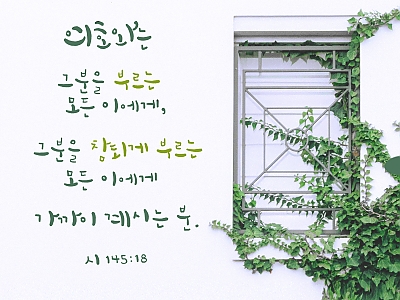 여호와는
그분을 부르는
모든 이에게,
그분을 참되게 부르는
모든 이에게
가까이 계시는 분.
시 145:18